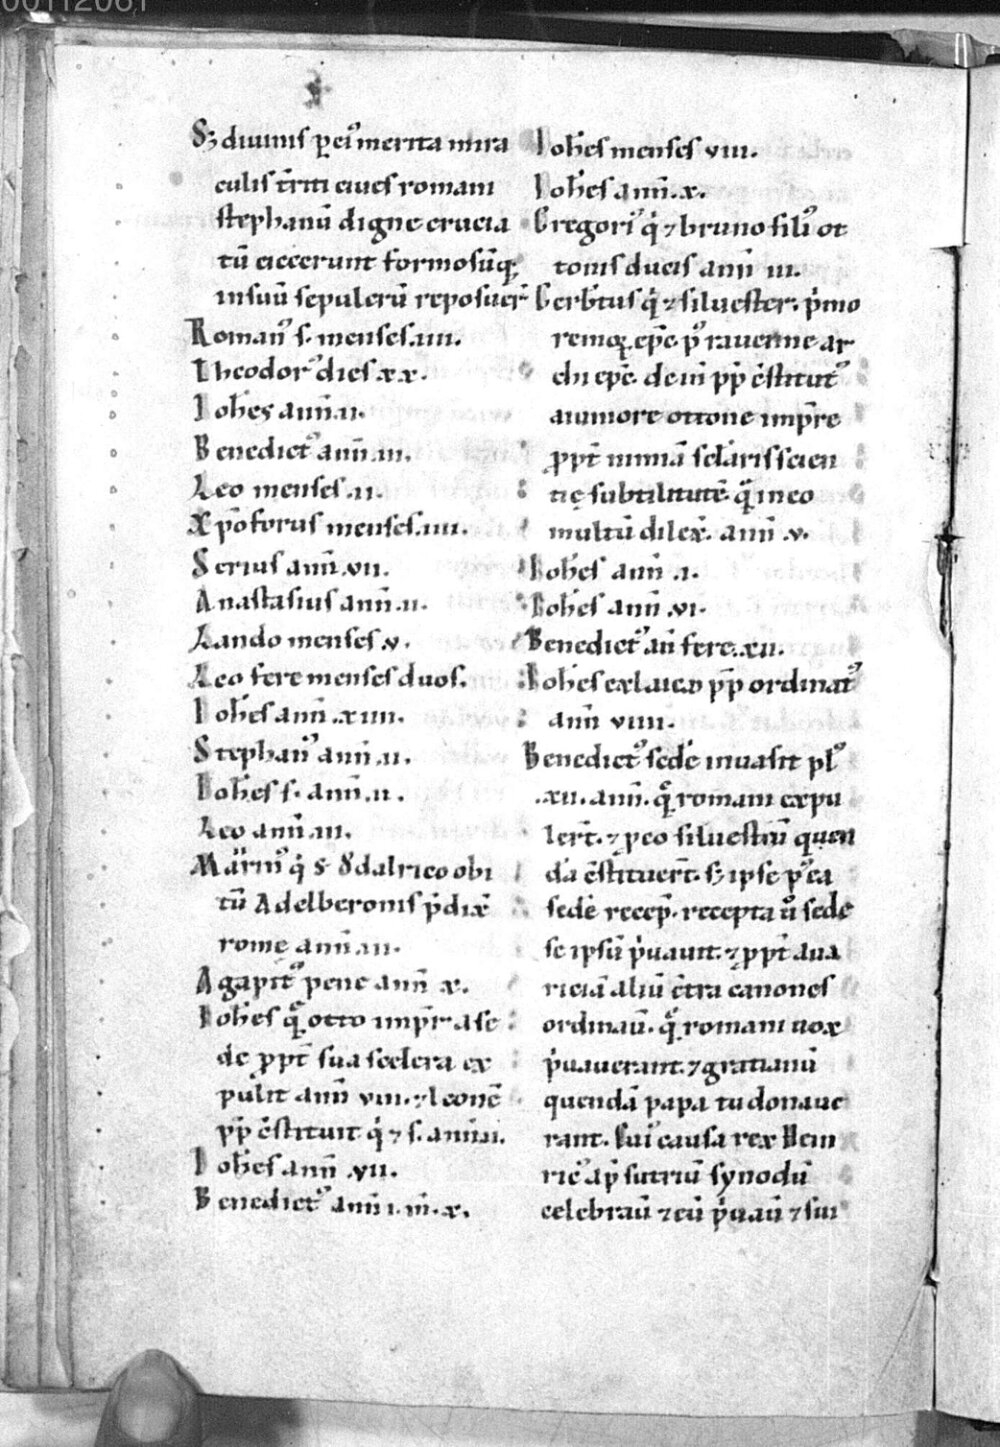 00112061
Sꝫ diuinis ꝑ eiꝰ merita mira
culis t̄riti ciues romani
stephanū digne crucia
tū eiecerunt formosūqꝫ
insuū sepulcrū reposuer̄
Romanꝰ s. menses .iiii.
Theodorꝰ dies .xx.
Ioh̄es ann̄ .ii.
Benedictꝰ ann̄ .iii.
Leo menses .ii.
Xp̄oforus menses .iiii.
Serius ann̄ .vii.
Anastasius ann̄ .ii.
Lando menses .v.
Leo fere menses duos.
Ioh̄es ann̄ .xiiii.
Stephanꝰ ann̄ .ii.
Ioh̄es s. ann̄ .ii.
Leo ann̄ .iii.
Marinꝰ q̇ s. Ỏdalrico obi
tū Adelberonis p̄dix̄
romę ann̄ .iii.
Agapitꝰ pene ann̄ .x.
Ioh̄es que̅ otto imp̄r a se
de ꝓpt̄ sua scelera ex
pulit ann̄ viii. ⁊ leonē
pp̄ c̄stituit q̇ ⁊ s. ann̄ .ii.
Ioh̄es ann̄ .vii.
Benedictꝰ ann̄ .i. m̄. x.
Ioh̄es menses viii.
Ioh̄es ann̄ .x.
Gregoriꝰ q̇ ⁊ bruno filiꝰ ot
tonis ducis ann̄ iii.
Gerb̄tus q̇ ⁊ siluester. p̄mo
remoꝝ ep̄c pꝰ rauenne ar
chiep̄c. dein̄ pp̄ c̄stitutꝰ
a iuniore ottone imp̄re
ꝓpt̄ nimiā sc̄laris scien
tię subtilitatē. que̅ in eo
multū dilex̄. ann̄ .v.
Ioh̄es ann̄ .i.
Ioh̄es ann̄ .vi.
Benedictꝰ an̄ fere .xii.
Ioh̄es ex laico pp̄ ordinatꝰ
ann̄ viiii.
Benedictꝰ sedē inuasit plꝰ
.xii. ann̄. que̅ romani expu
lert̄. ⁊ ꝓ eo siluestrū quen
dā c̄stituert̄. sꝫ ipse pꝰea
sedē recep̄. recepta ū sede
se ipsū p̄uauit. ⁊ ꝓpt̄ aua
riciā aliū c̄tra canones
ordinaū. que̅ romani uox
p̄uauerant. ⁊ gratianū
quendā papatu donaue
rant. Hui causa rex Hein
ricꝰ ap̄ sutriū synodū
celebraū ⁊ eū p̄uaū ⁊ sui